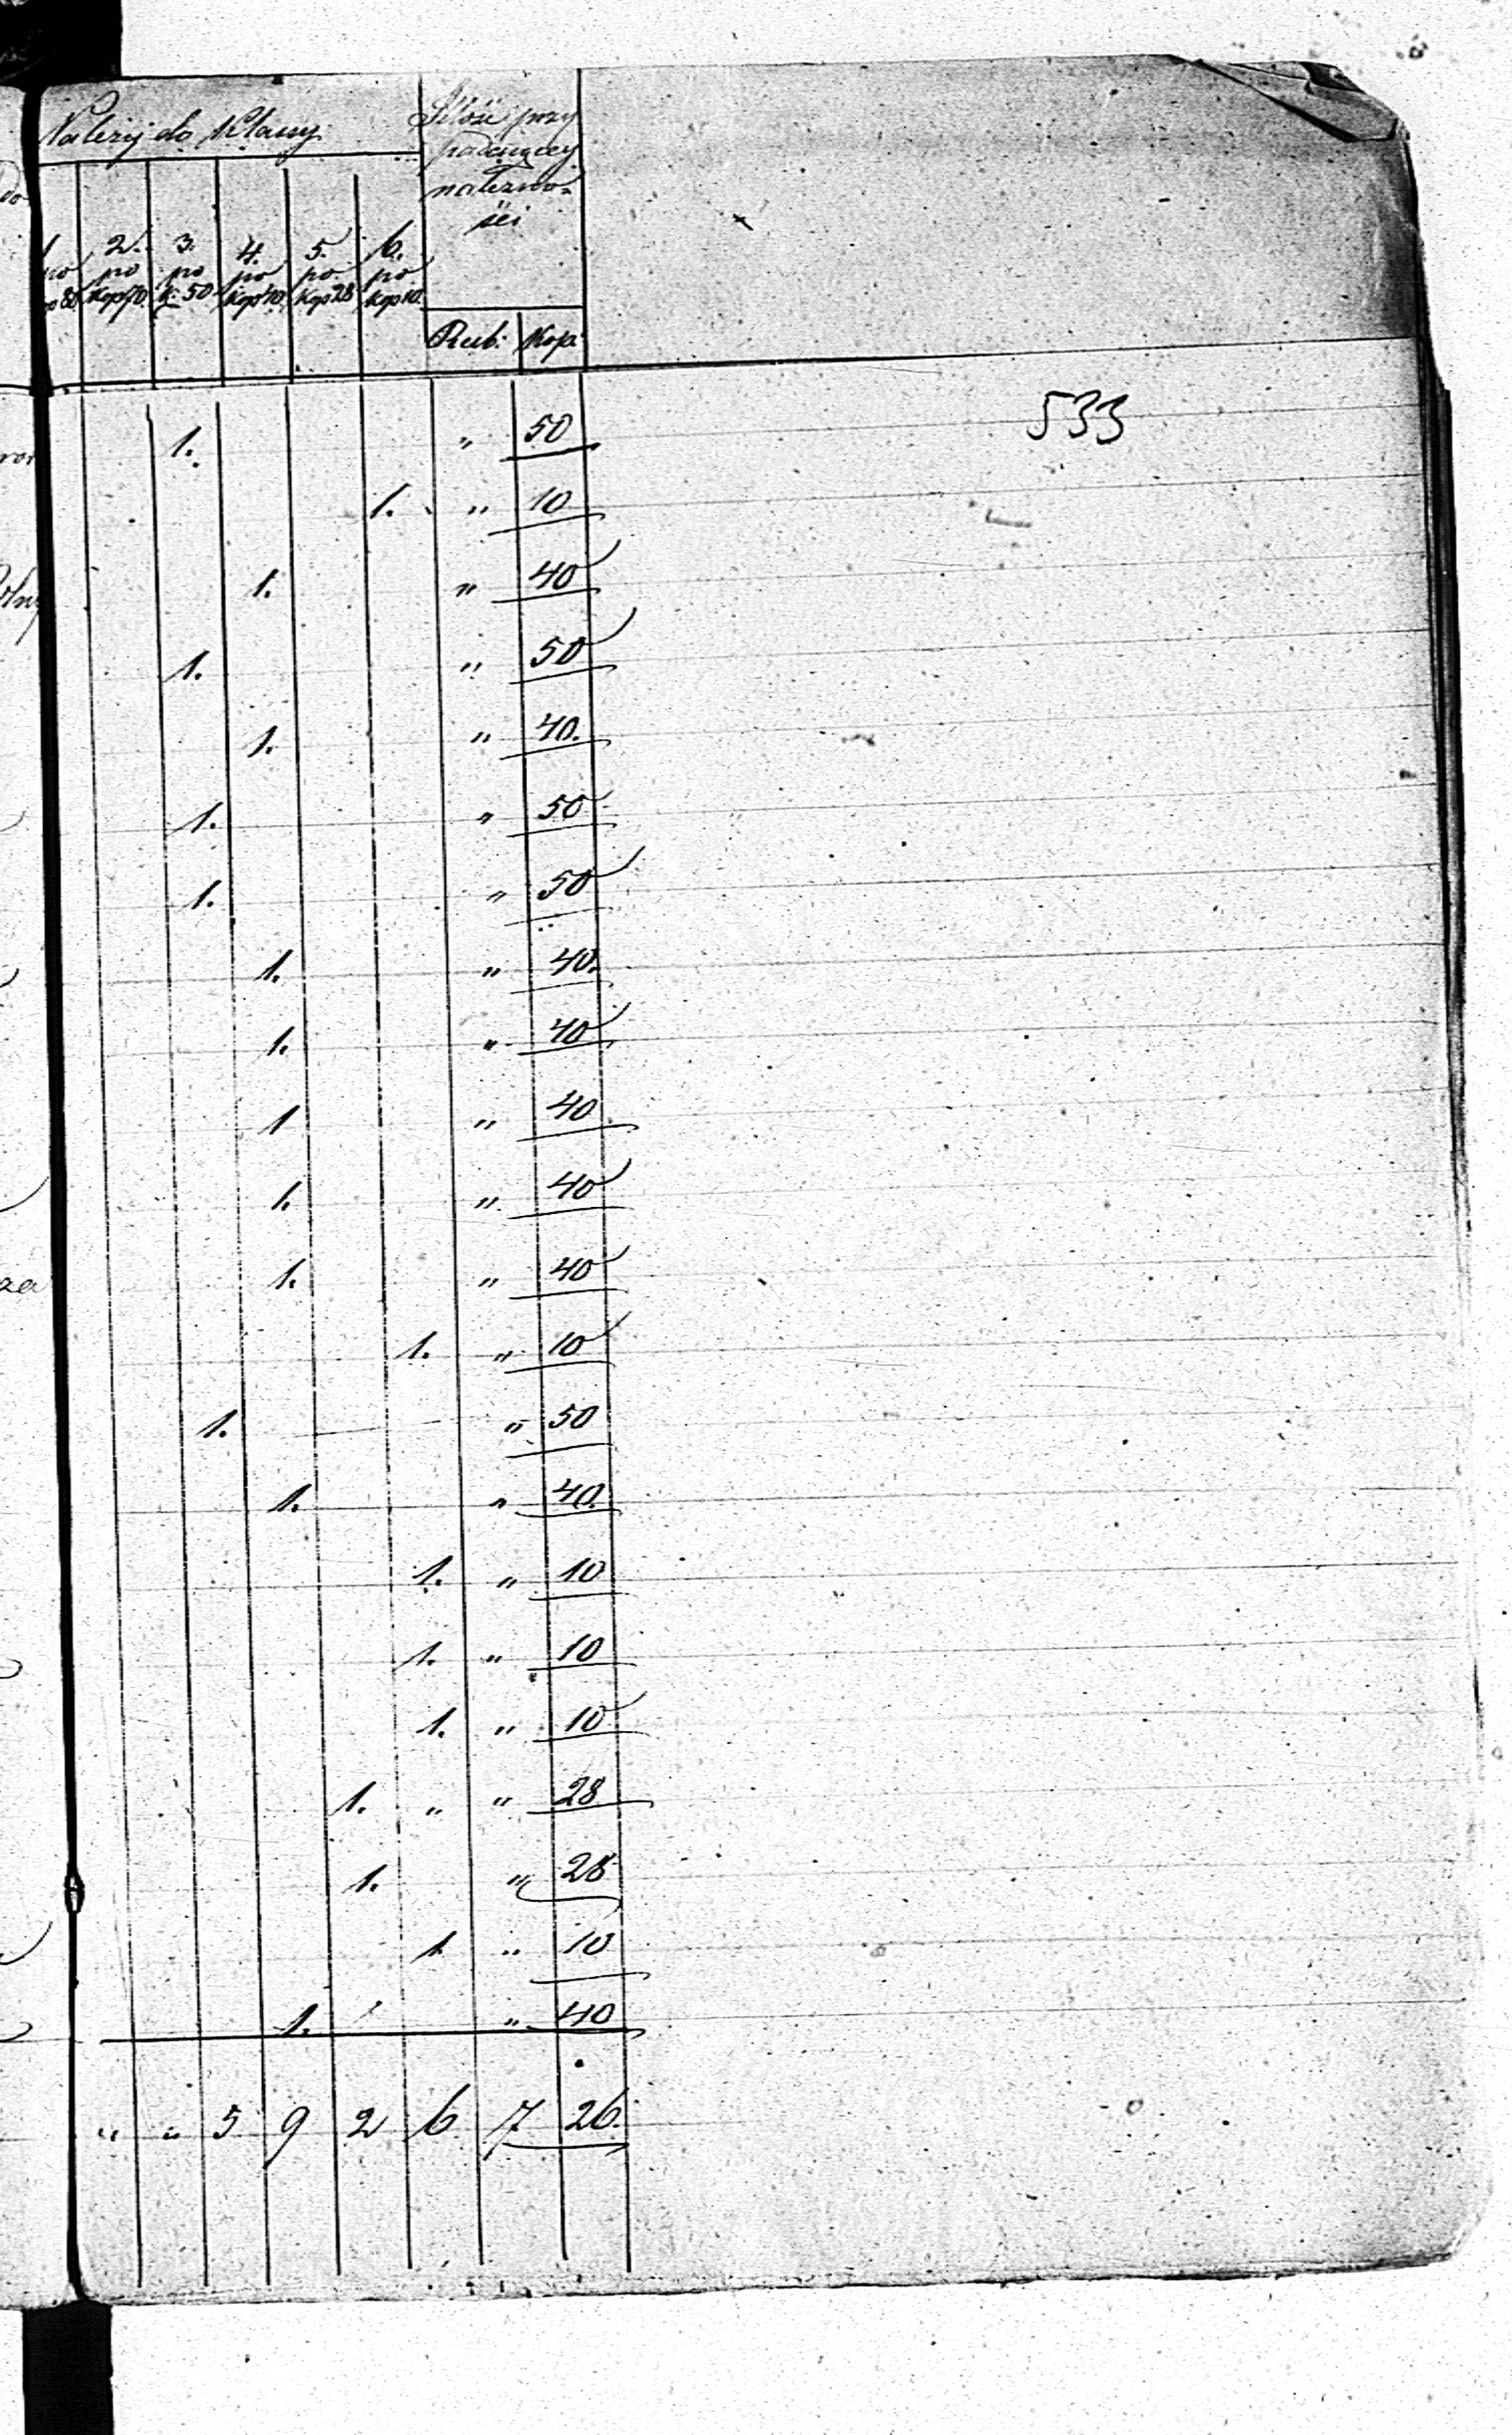 Należy do Klassy
Ilość przy
padaiącey
należno-
ści
2. 3. 4. 5. 6.
po po po po po po
Kop 70. k. 50 kop 40. kop 28 kop 10.
Rub. Kop.
533
1. " 50
1. " 10
1. " 40
1. " 50
1. " 40.
1. " 50
1. " 50
1. " 40.
1. " 40
1 " 40
1. " 40
1. " 40
1. " 10
1. " 50
1. " 40.
1. " 10
1. " 10
1. " 10
1. " " 28
1. " 28
1 " 10
1. " 40
" " 5 9 2 6 7 26.